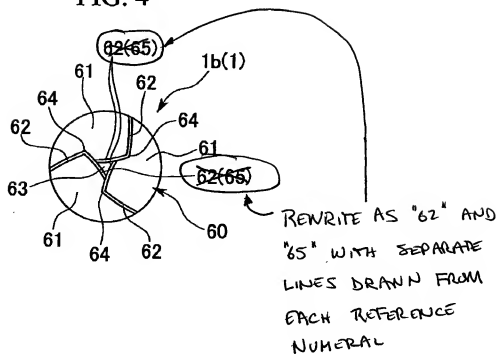 FIG. 4
62(65)
1b(1)
61
62
64
64
62
61
62(65)
63
61
64
62
60
REWRITE AS "62" AND
"65" WITH SEPARATE
LINES DRAWN FROM
EACH REFERENCE
NUMERAL